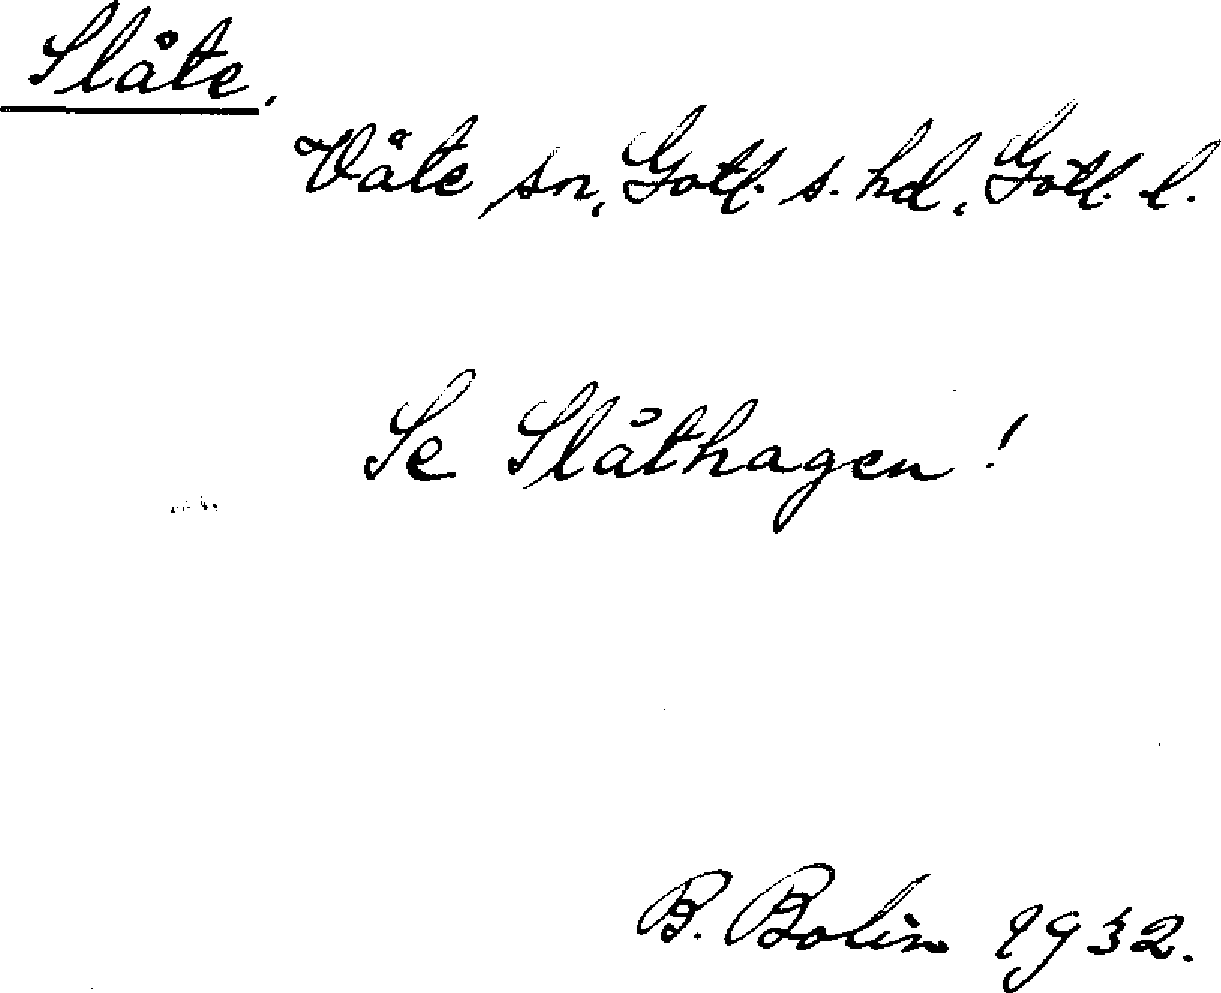 Slåte.
Väte sn, Gotl. s. hd, Gotl. l.
Se Slåthagen!
B. Bolin 1932.